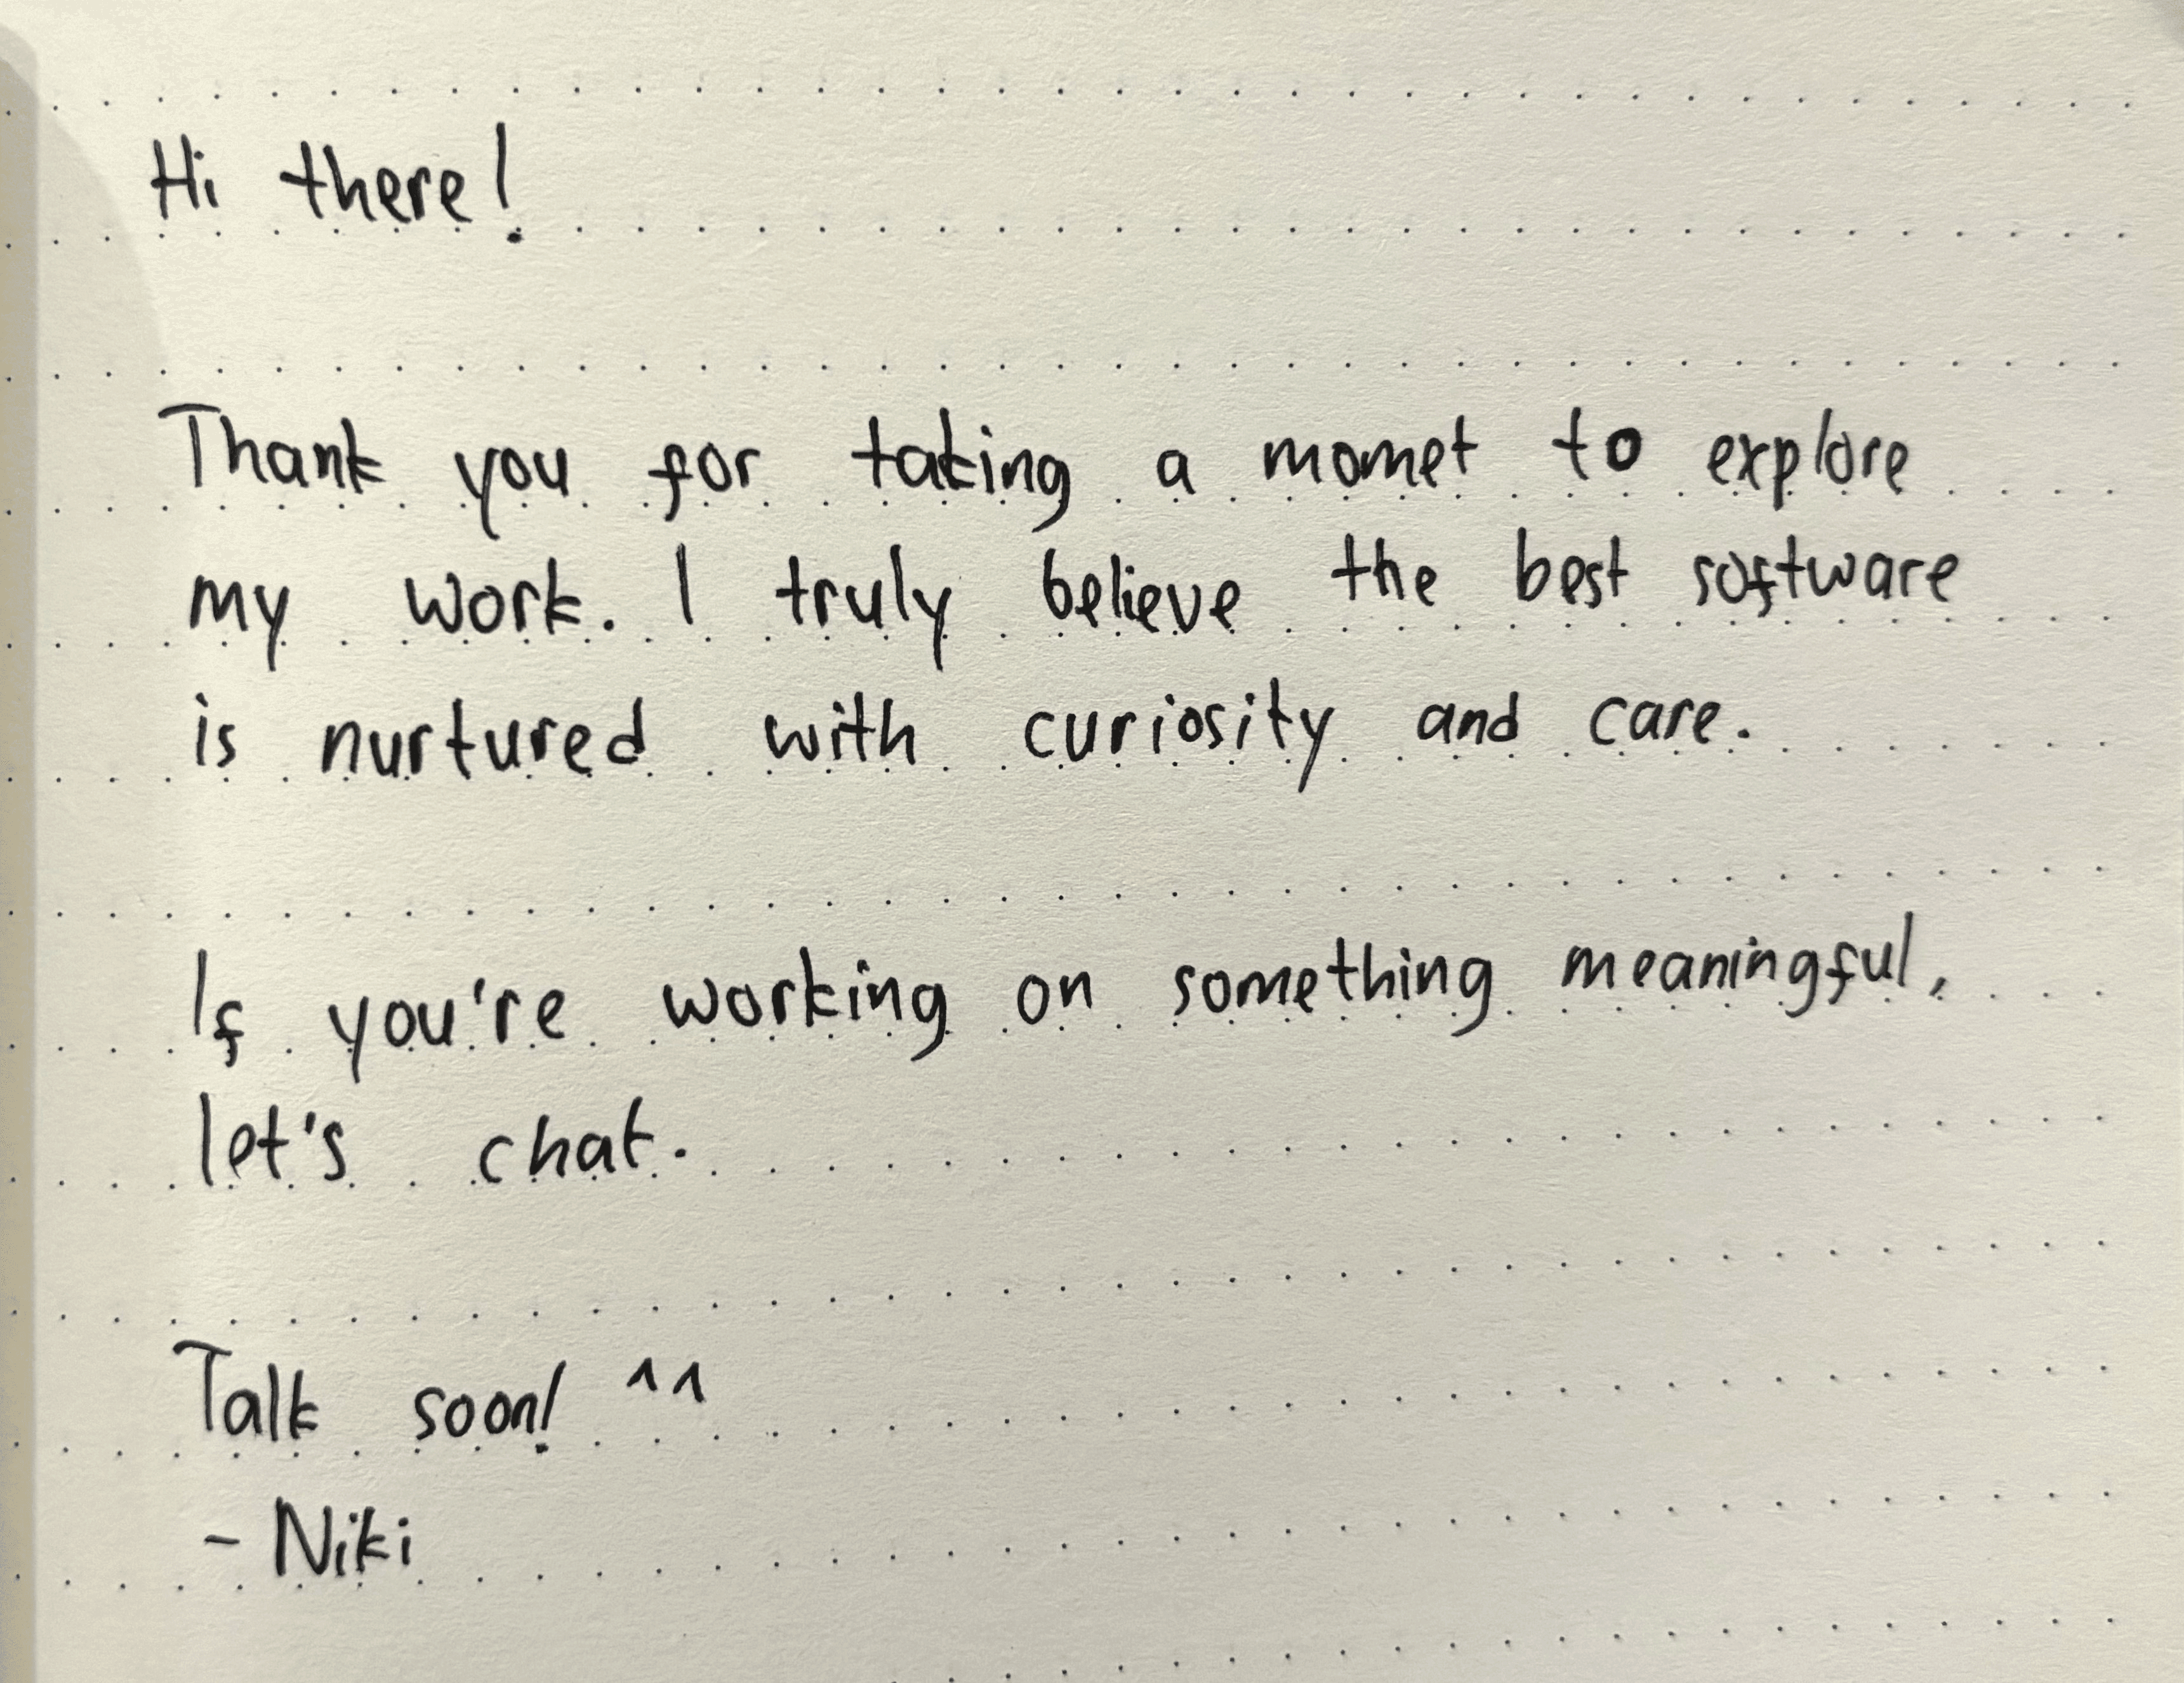 Hi there!
Thank you for taking a momet to explore
my work. I truly believe the best software
is nurtured with curiosity and care.
If you're working on something meaningful,
let's chat.
Talk soon! ^^
- Niki